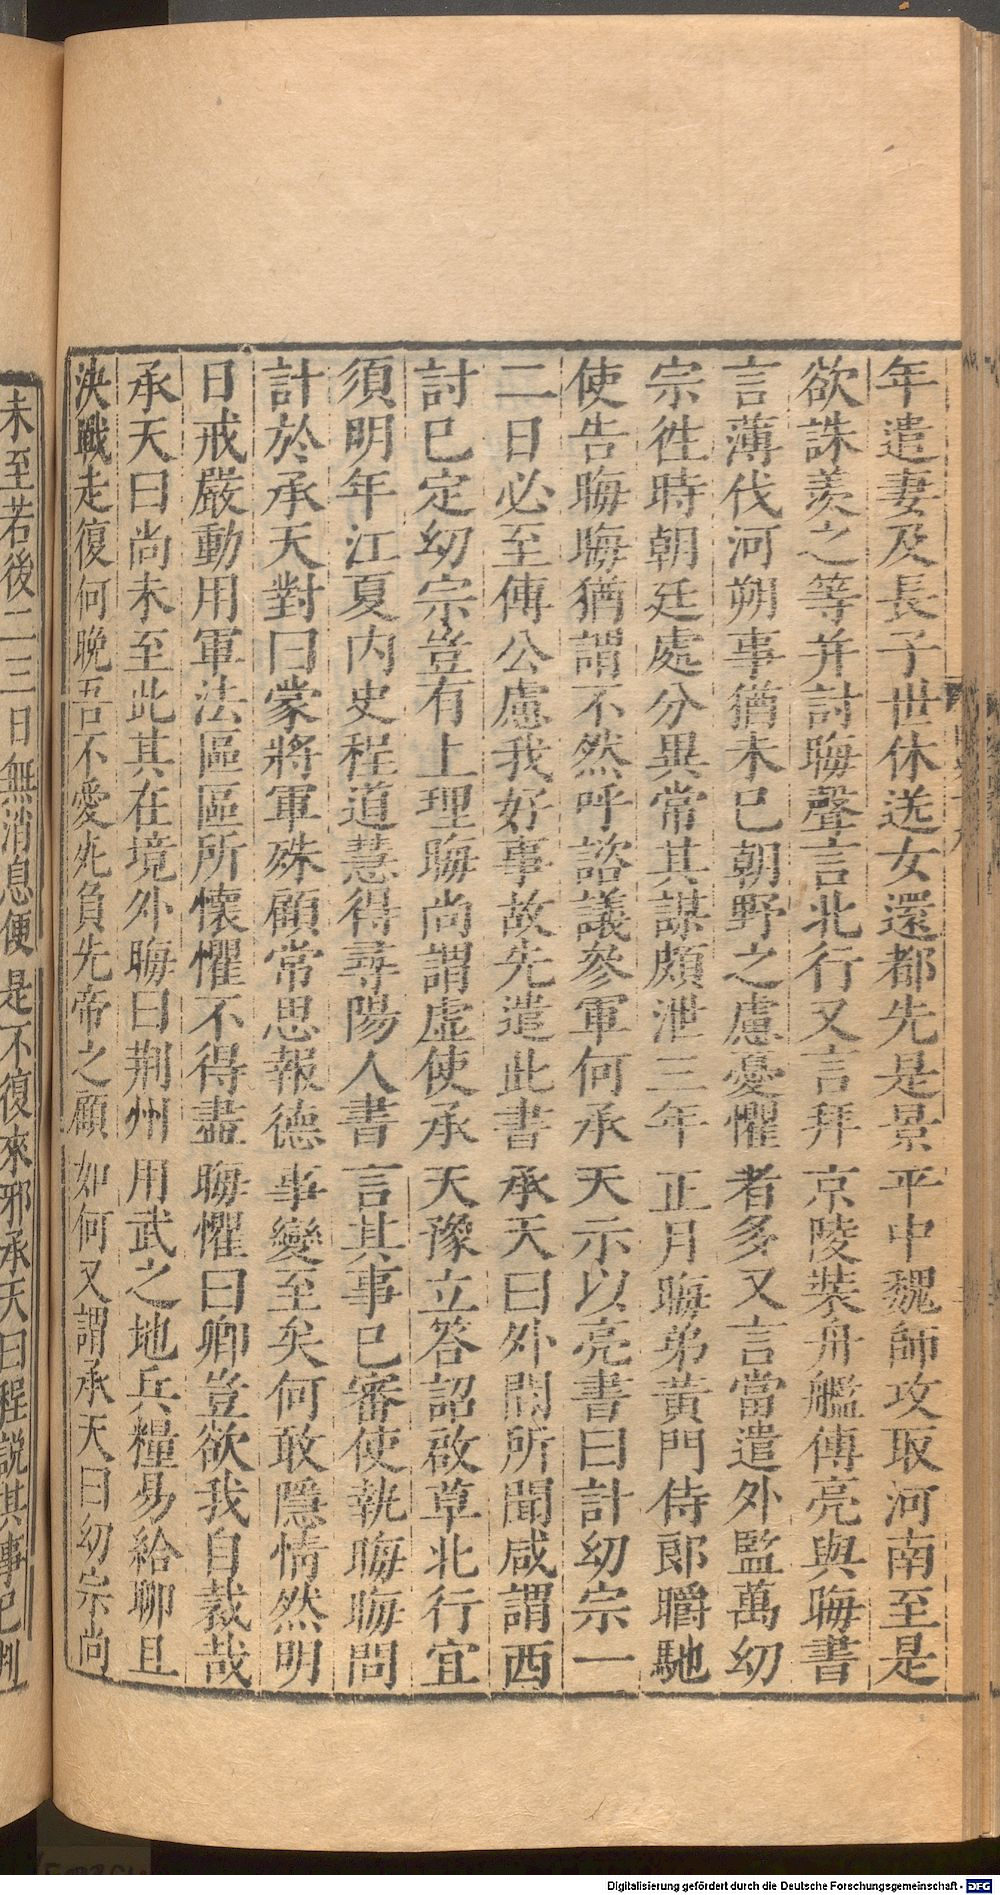 年遣妻及長子世休送女還都先是景平中魏師攻取河南至是
欲誅羨之等并討晦聲言北行又言拜京陵裝舟艦傅亮與晦書
言薄伐河朔事猶未已朝野之慮憂懼者多又言當遣外監萬幼
宗徃時朝廷處分異常其謀頗泄三年正月晦弟黃門侍郎㬭馳
使告晦晦猶謂不然呼諮議參軍何承天示以亮書曰計幼宗一
二日必至傅公慮我好事故先遣此書承天曰外間所聞咸謂西
討已定幼宗豈有上理晦尚謂虛使承天豫立答詔啟草北行宜
須明年江夏内史程道慧得尋陽人書言其事已審使執晦晦問
計於承天對曰蒙將軍殊顧常思報德事變至矣何敢隱情然明
日戒嚴動用軍法區區所懷懼不得盡晦懼曰卿豈欲我自裁哉
承天曰尚未至此其在境外晦曰荆州用武之地兵糧易給聊且
決戰走復何晚吾不愛死負先帝之顧如何又謂承天曰幼宗尚
未至若後二三日無消息便是不復來邪承天曰程説其事已判
Digitalisierung gefördert durch die Deutsche Forschungsgemeinschaft - DFG